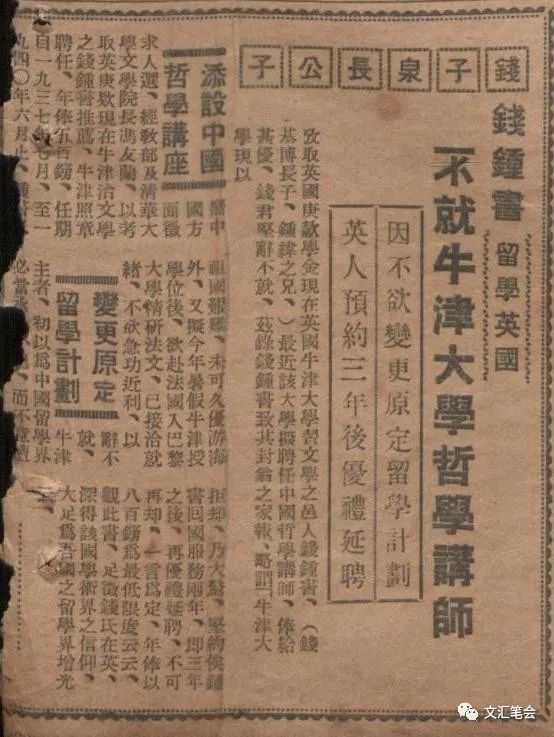 錢子泉長公子
錢鍾書 留學英國
不就牛津大學哲學講師
因不欲變更原定留學計劃
英人預約三年後優禮延聘
攷取英國庚款學金現在英國牛津大學習文學之邑人錢鍾書、(錢
基博長子、鍾緯之兄、)最近該大學擬聘任中國哲學講師、俸給
甚優、錢君堅辭不就、茲錄錢鍾書致其封翁之家報、略謂「牛津大
學現以
添設中國
哲學講座
當中
國方
面徵
求人選、經敎部及清華大
學文學院長馮友蘭、以考
取英庚欵現在牛津治文學
之錢鍾書推薦、牛津照章
聘任、年俸五百鎊、任期
自一九三七年七月、至一
九四〇年六月止、鍾書
祖國艱難、未可久優游海
外、又擬今年暑假牛津授
學位後、欲赴法國入巴黎
大學精研法文、已接洽就
緒、不欲急功近利、以
變更原定
留學計劃
辭不
就、
牛津
主者、初以爲中國留學界
必當 而不意
拒却、乃大駭、堅約俟鍾
書回國服務兩年、即三年
之後、再優禮延聘、不可
再却、一言爲定、年俸以
八百鎊爲最低限度云云、
觀此書、足徵錢氏在英、
深得該國學術界之信仰、
大足爲吾國之留學界增光
文汇笔会